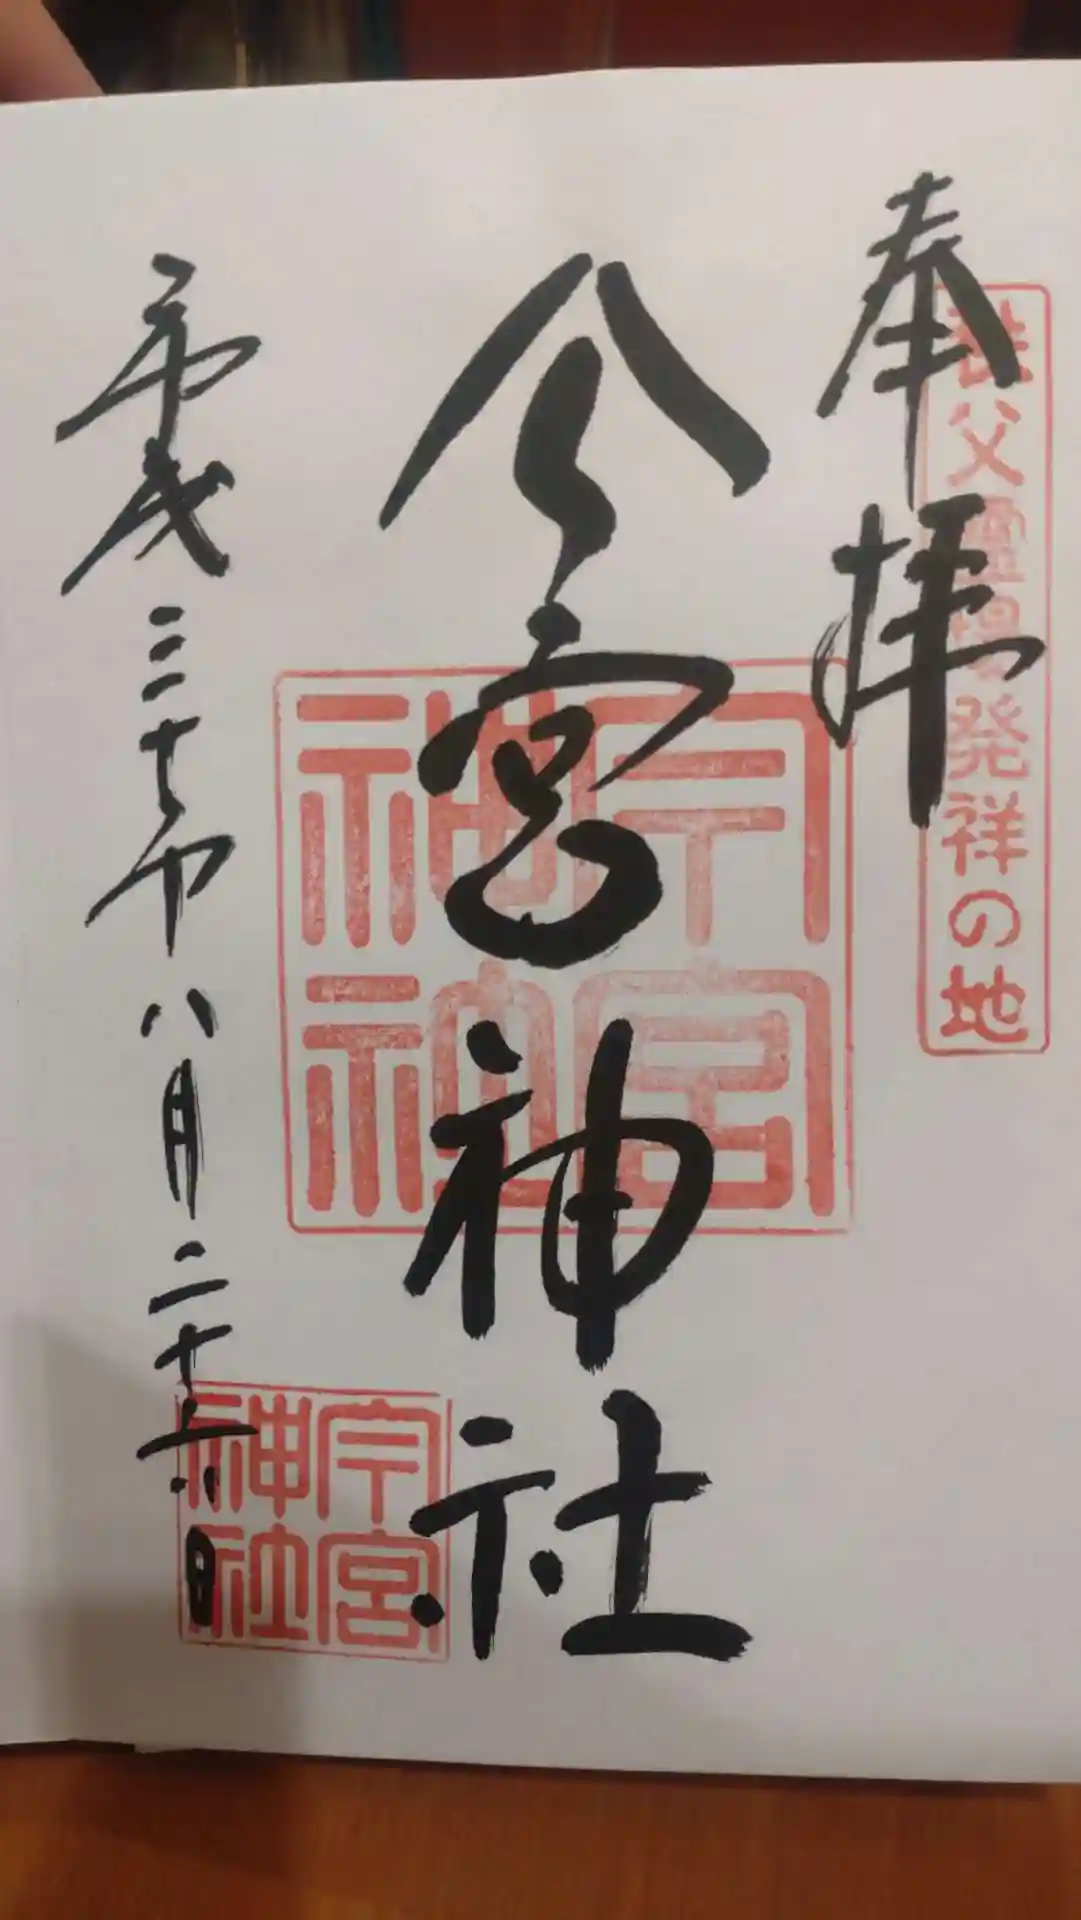 奉拝
秩父霊場発祥の地
今宮神社
今宮神社
平成二十七年八月二十六日
今宮神社